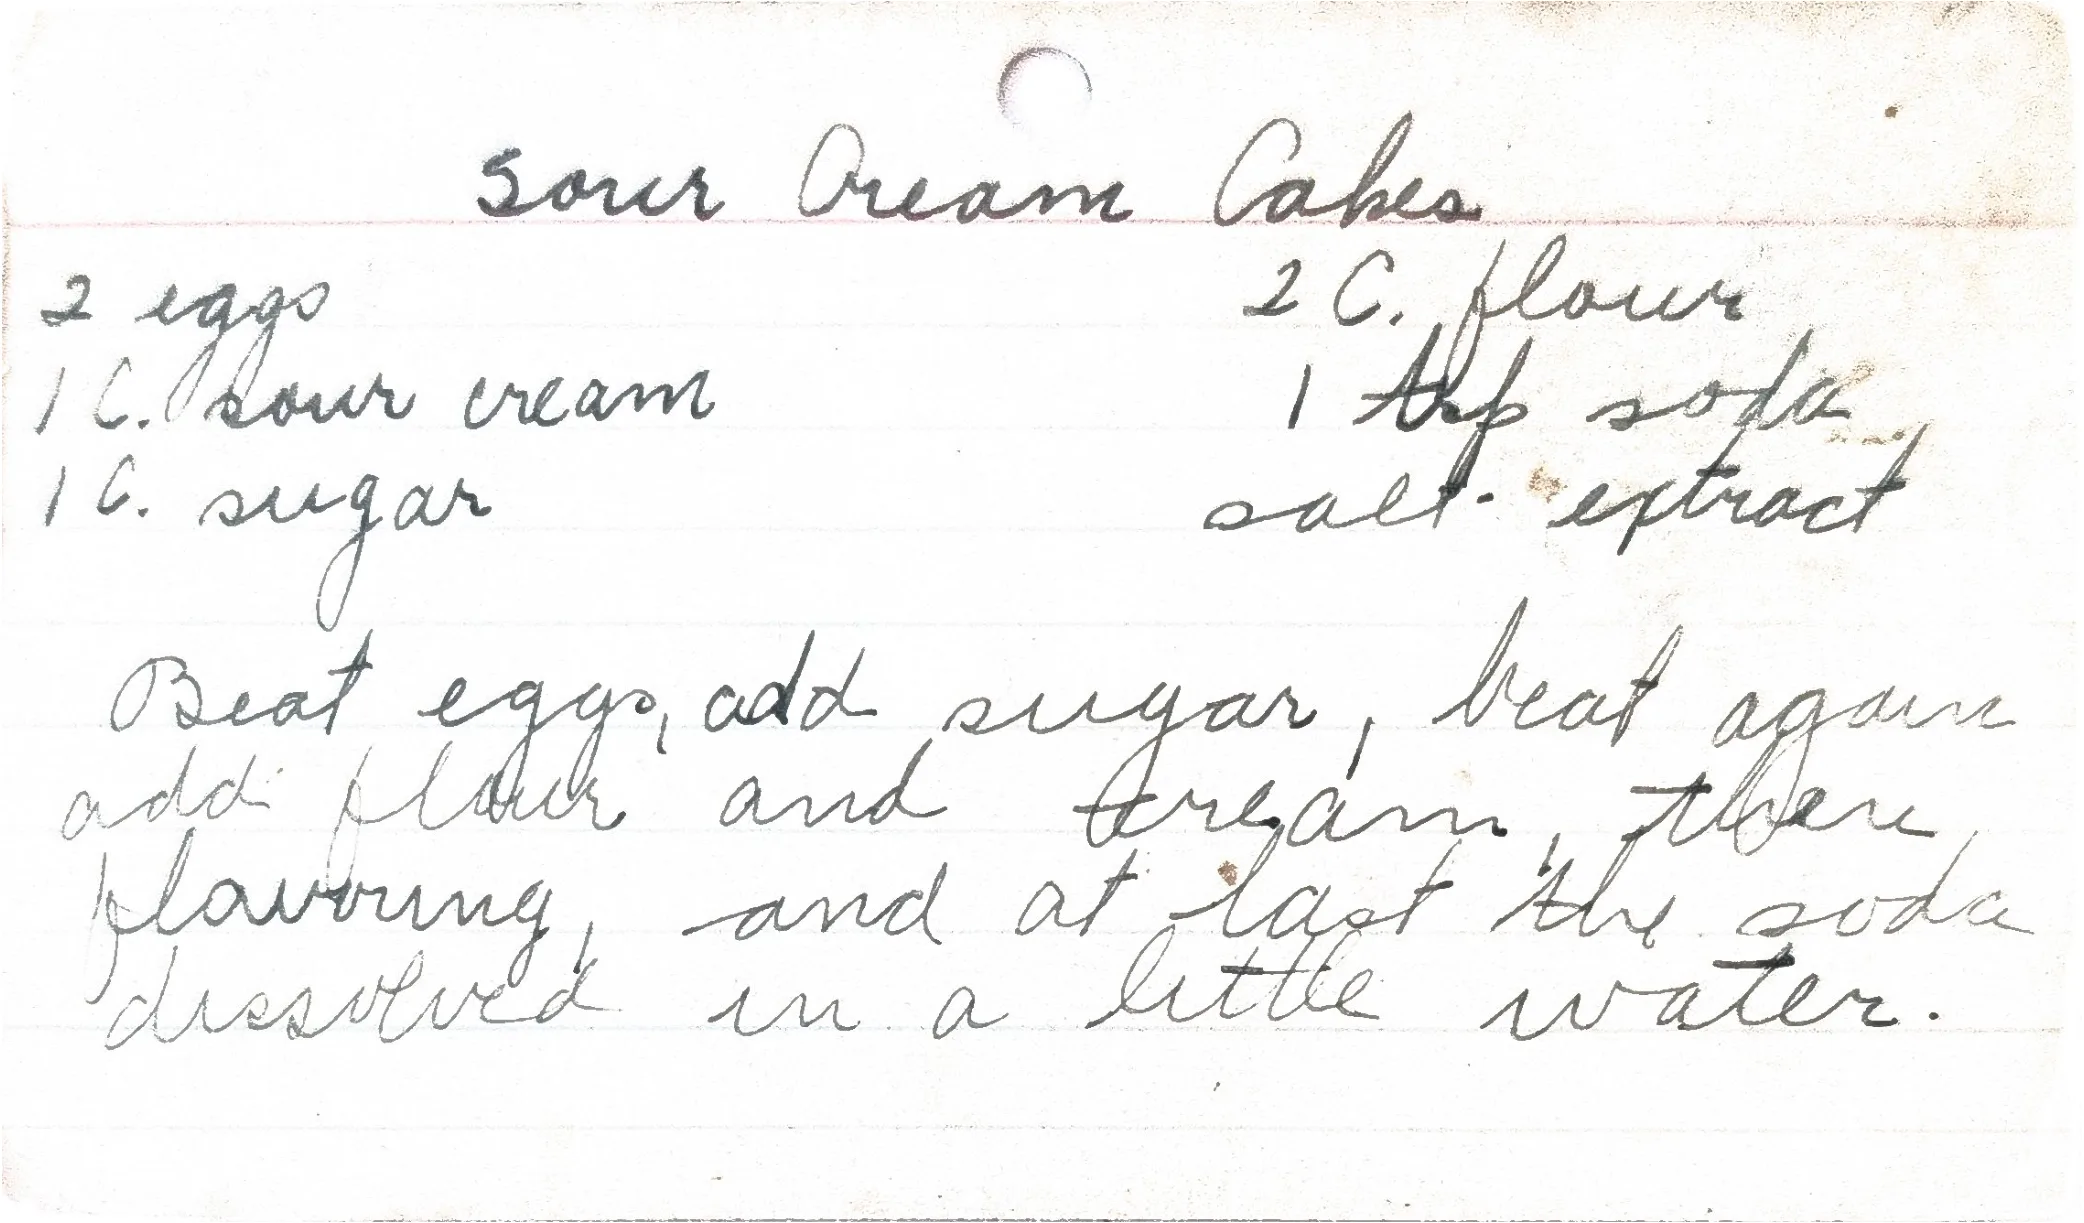 Sour Cream Cakes
2 eggs 2 C. flour
1 C. sour cream 1 tsp soda
1 C. sugar salt - extract
Beat eggs, add sugar, beat again
add flour and cream, then
flavoring, and at last the soda
dissolved in a little water.